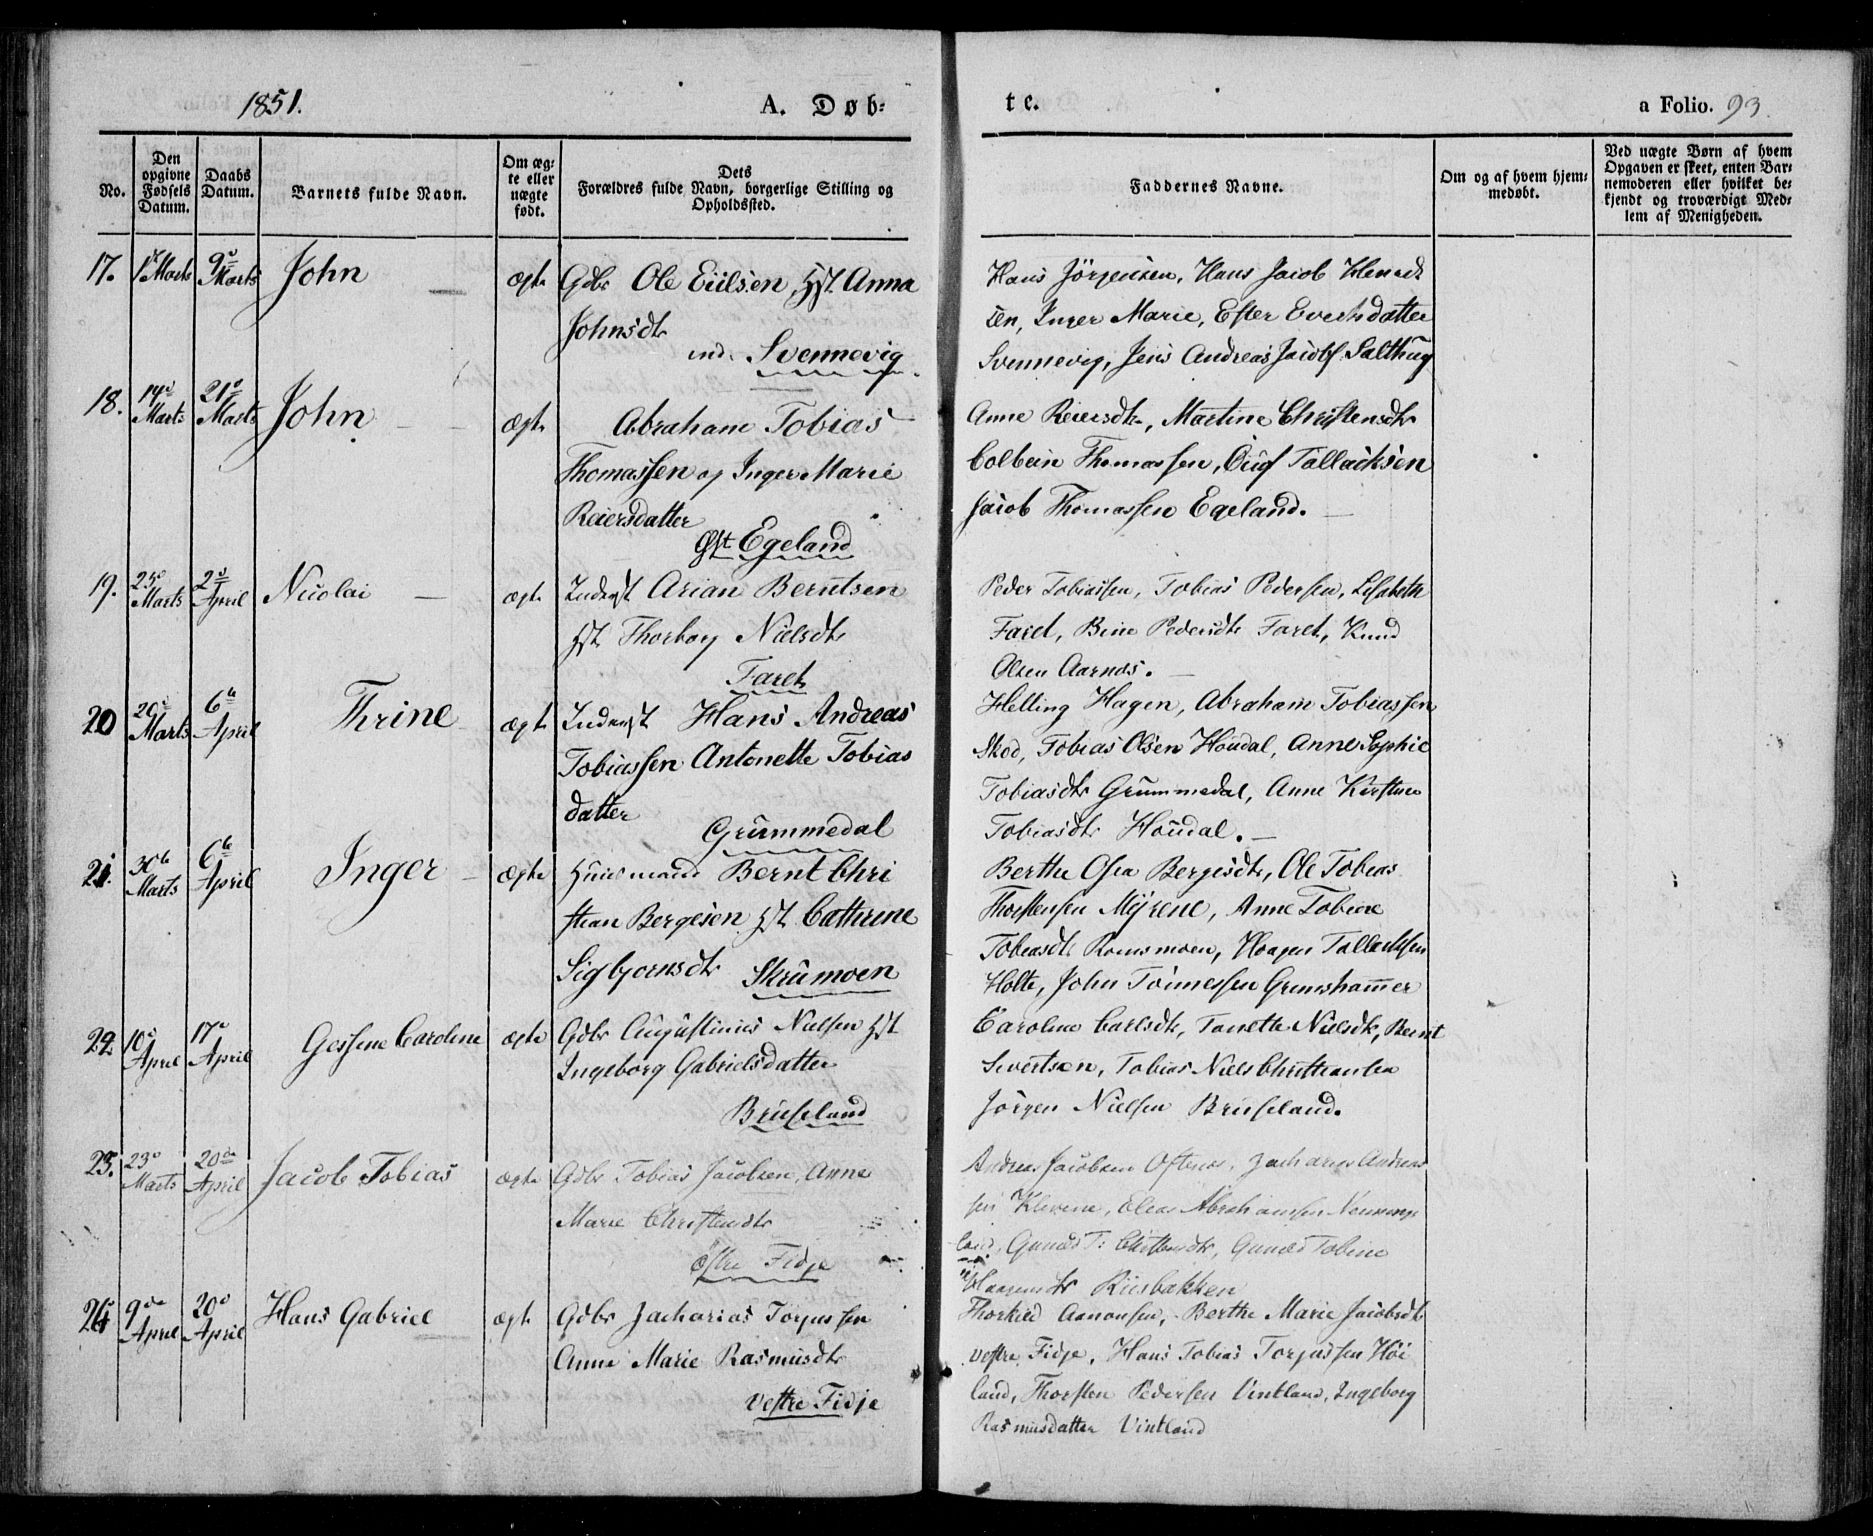 1851. A. Døb= te. a Folio. 93.
No.
Den opgivne Fødsels Datum.
Daabs Datum.
Barnets fulde Navn.
Om ægte eller uægte født.
Dets Forældres fulde Navn, borgerlige Stilling og Opholdssted.
Faddernes Navne.
Om og af hvem hjemmedøbt.
Ved uægte Børn af hvem Opgaven er skeet, enten Barnemoderen eller hvilket bekjendt og troværdigt Medlem af Menigheden.
17. 1 Marts 9 Marts John ægte Gdbr Ole Eiilsen, Hst. Anna
Johnsdtr
Svennevig
Hans Jörgensen, Hans Jacob
sen, Inger Marie, Ester Evertsdatter
Svennevig, Jens Andreas Jacobs. Salthug
18. 14d Marts 21d Marts John ægte Abraham Tobias
Thomassen og Inger Marie
Reiersdatter
Øst Egeland
Anne Reiersdtr, Martine Christensdtr
Colbein Thomassen, Tallaksen
Jacob Thomassen Egeland.
19. 25d Marts 2d April Nicolai ægte Inderst Arian Berntsen
Hst. Thorbor Nielsdtr
Faret
Peder Tobiassen, Tobias Pedersen, Lisabeth
Faret, Bine Pedersdtr Faret, Knud
Olsen Aarnæs.
20 20d Marts 6te April Thrine ægte Inderst Hans Andreas
Tobiassen Antonette Tobias
datter
Grummedal
Helling Hagen, Abraham Tobiassen
Skod, Tobias Olsen Houdal, Anne Sophie
Tobiasdtr Grummedal, Anne Kirstine
Tobiasdtr Houdal.
21. 30te Marts 6te April Inger ægte Huusmand Bernt Chri
stian Bergesen Hst. Cathrine
Sigbjornsdtr Skrumoen
Berthe Osea Bergesdtr, Ole Tobias
Thorstensen Myrene, Anne Tobine
Tobiasdtr Romsmoen, Haagen Tallaksen
Holte, John Tönnessen Grimshammer
22. 10d April 17d April Gessine Caroline ægte Gdbr Augustinus Nielsen Hst
Ingeborg Gabrielsdatter
Bruseland
Caroline Carlsdtr, Tonette Nielsdtr, Bernt
Sivertsen, Tobias Niels Christiansen
Jörgen Nielsen Bruseland.
23. 23d Marts 20de April Jacob Tobias ægte Gdbr Tobias Jacobsen, Anne
Marie Christensdtr
østre Fidje
Andreas Jacobsen Oftenæs, Zacharias Andreas
sen Klevene, Elias Abrahamsen
land, Tobine
Riisbakken
24 9de April 20d April Hans Gabriel ægte Gdbr Zacharias Torjussen
Anne Marie Rasmusdtr
Vestre Fidje
Thorkild Aanonsen, Berthe Marie Jacobsdtr
vestre Fidje, Hans Tobias Torjussen Höi
land, Thorsten Pedersen Vintland, Ingeborg
Rasmusdatter Vintland